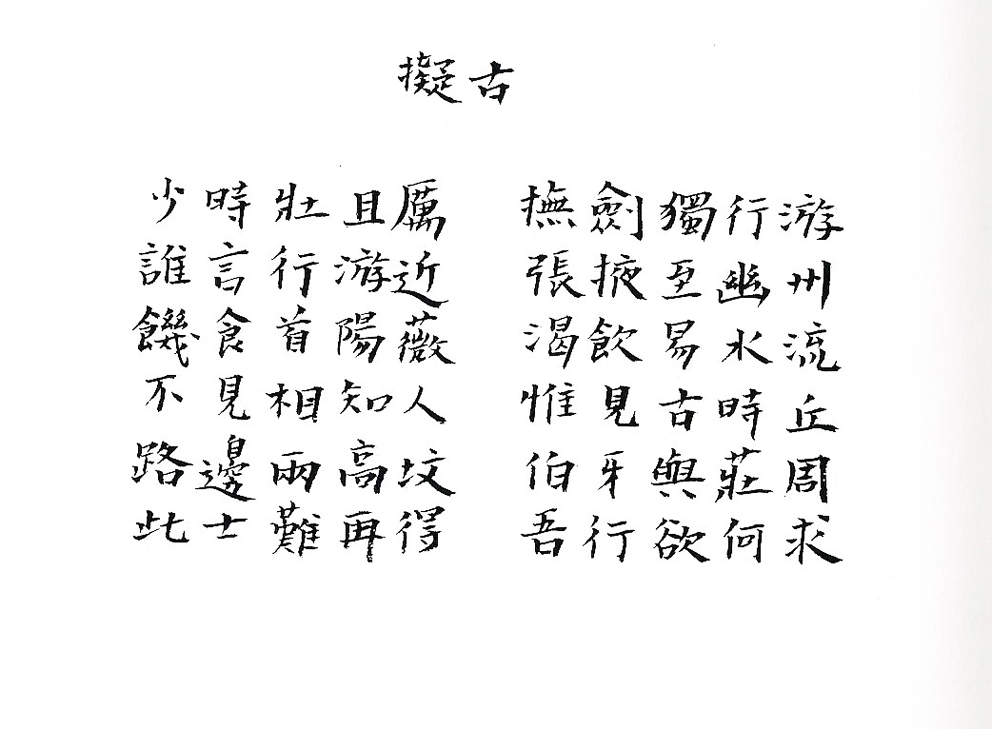 擬古
少時壯且厲 撫劍獨行游
誰言行游近 張掖至幽州
饑食首陽薇 渴飲易水流
不見相知人 惟見古時丘
路邊兩高墳 伯牙與莊周
此士難再得 吾行欲何求